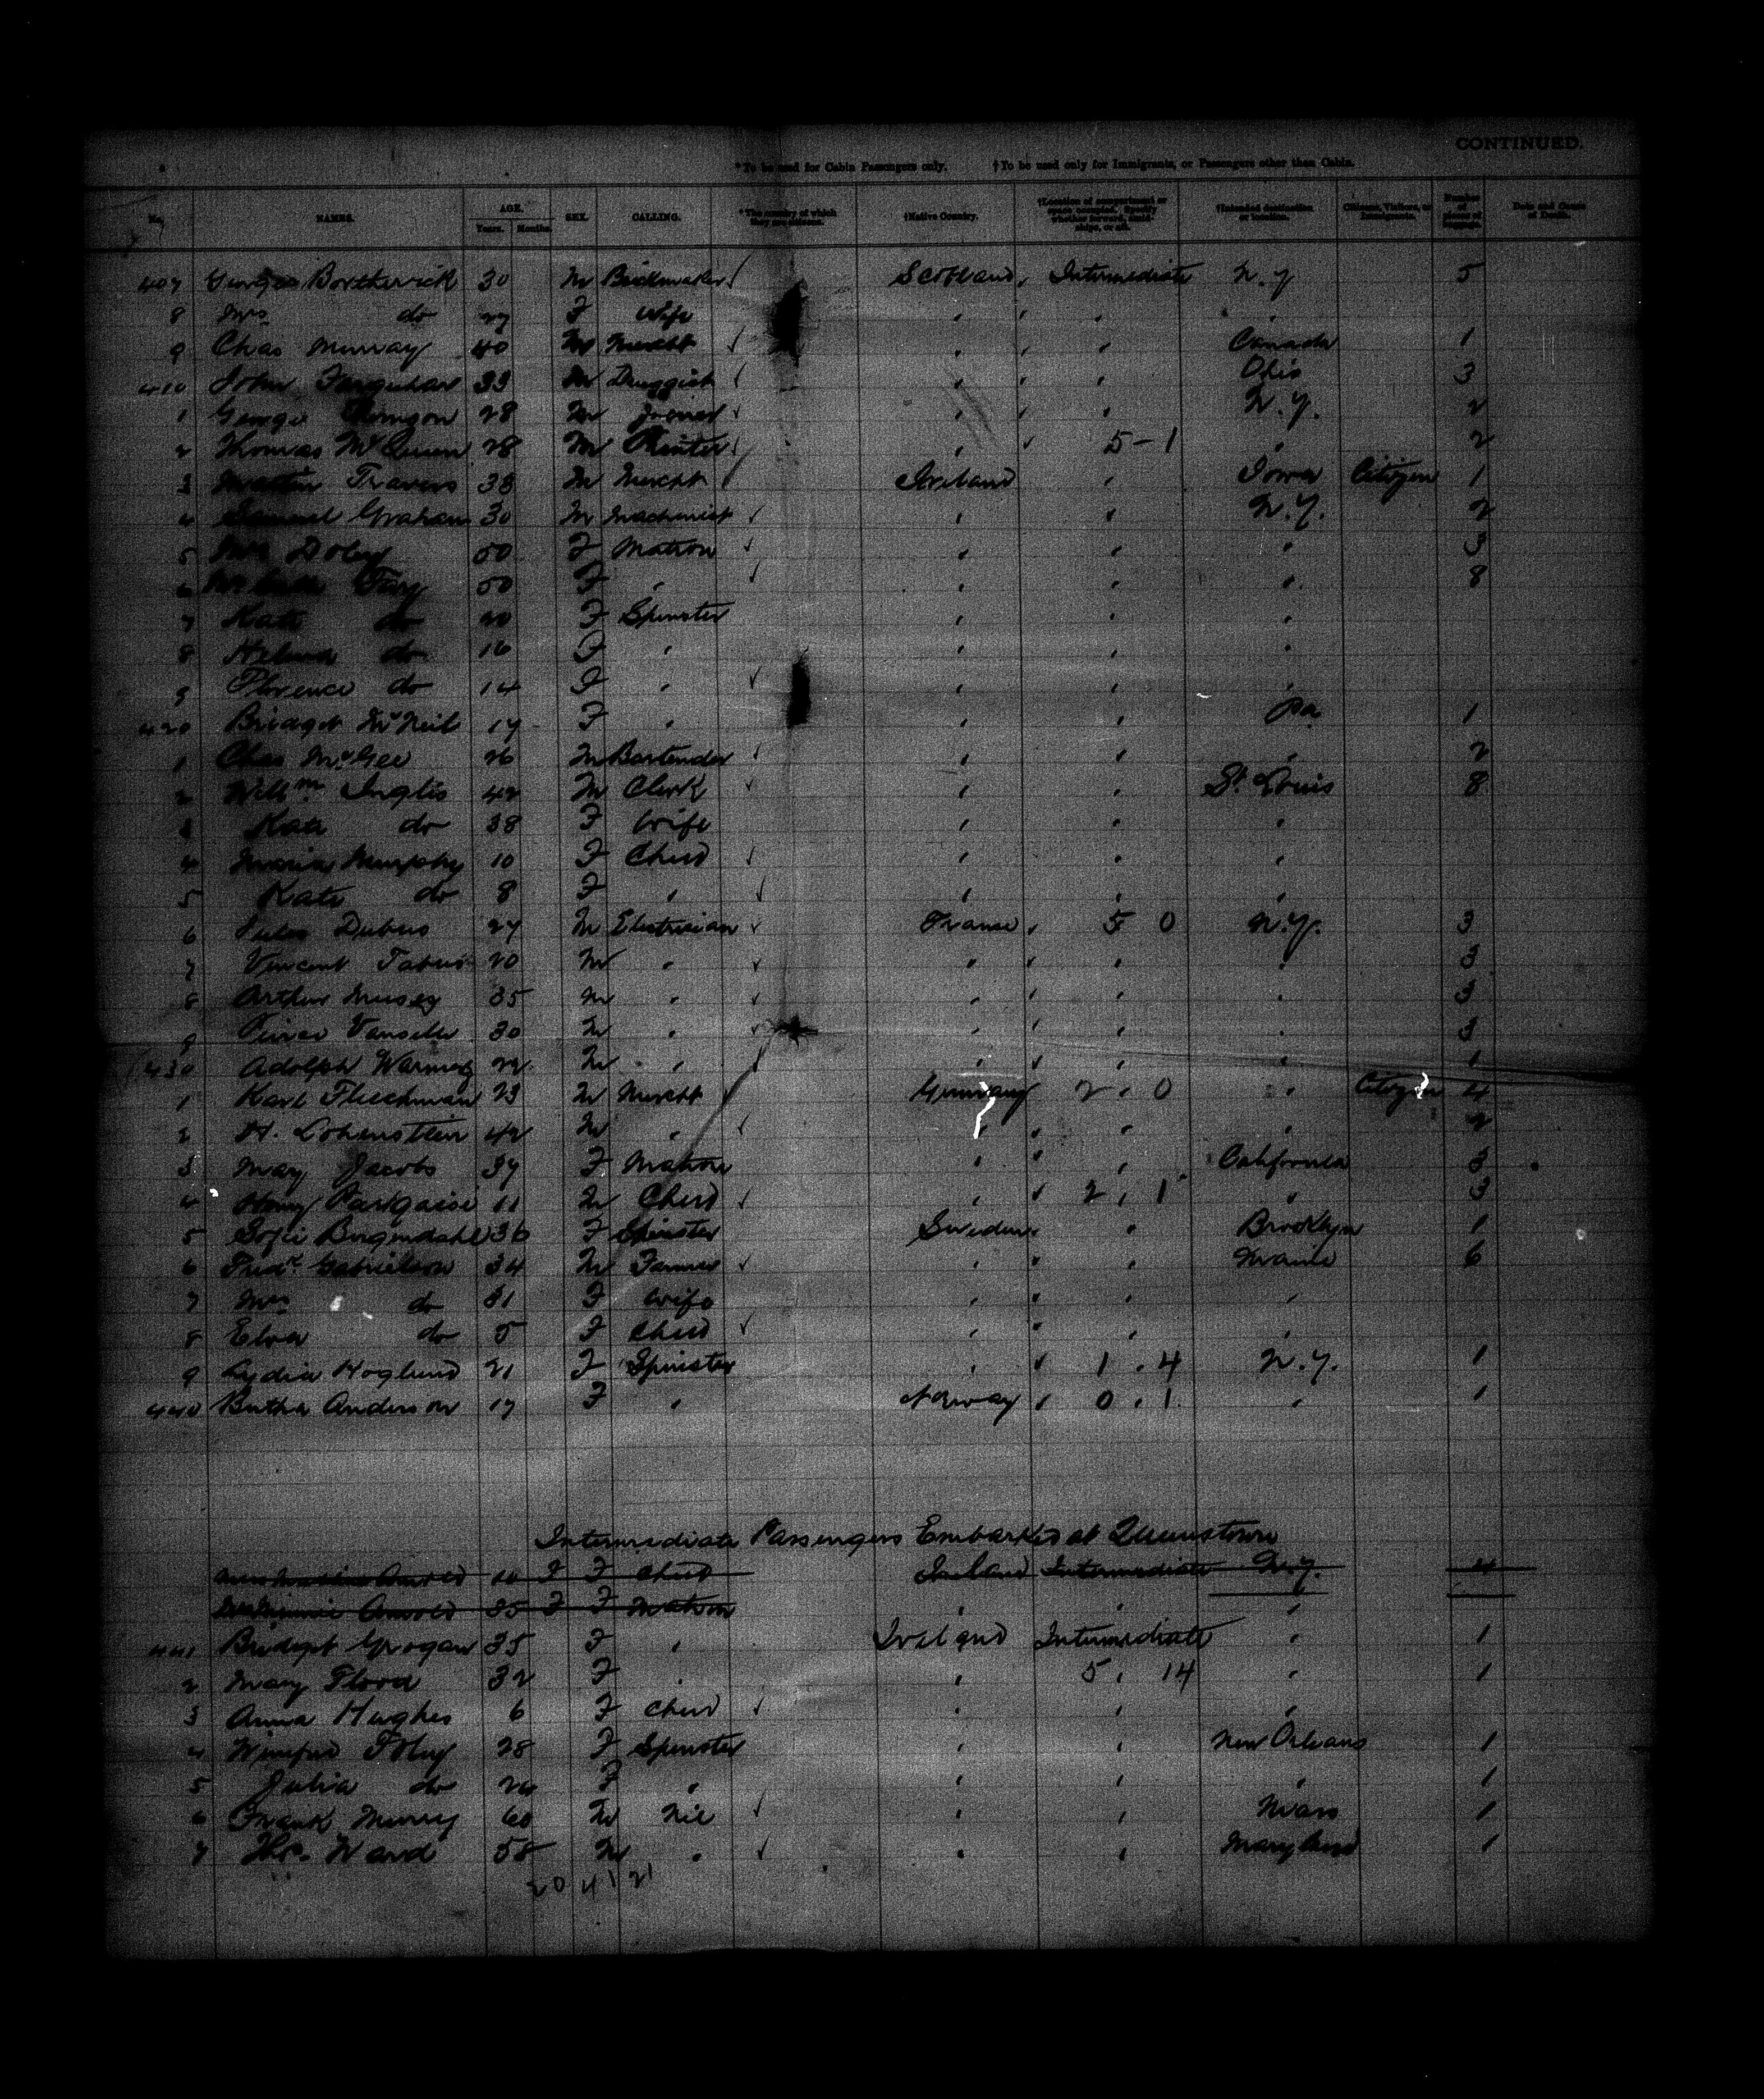 CONTINUED.
*To be used for Cabin Passengers only. †To be used only for Immigrants, or Passengers other than Cabin.
No. NAMES. AGE. Years. Months. SEX. CALLING. *The country of which they are citizens. †Native Country. †Location of compartment or space occupied. Specify whether forward, amidships, or aft. †Intended destination or location. Citizens, Visitors, or Immigrants. Number of pieces of baggage. Date and Cause of Death.
407 George Bortherick 30 M Brickmaker Scotland Intermediate N.Y 5
8 Mrs do 27 F Wife " " "
9 Chas Murray 40 M Mercht " " Canada 1
410 John Farquhar 33 M Druggist " " Ohio 3
1 George 28 M Joiner " " N.Y. 2
2 Thomas McQueen 28 M " 5-1 " 2
3 Martin Travers 38 M Mercht Ireland " Iowa Citizen 1
4 Samuel Graham 30 M Machinist " " N.Y. 2
5 Mrs 50 F Matron " " " 3
6 50 F " " " " 8
7 Kate do 20 F Spinster " " "
8 do 16 F " " " "
9 Florence do 14 F " " " "
420 Bridget McNeil 17 F " " " Pa 1
1 Chas McGee 26 M Bartender " " " 2
2 Willm Inglis 42 M Clerk " " St Louis 8
3 Kate do 38 F Wife " " "
4 Maria Murphy 10 F Child " " "
5 Kate do 8 F " " " "
6 Jules Dubus 27 M Electrician France 5 0 N.Y. 3
7 Vincent 20 M " " " " 3
8 Arthur 35 M " " " " 3
9 30 M " " " " 3
430 Adolph 22 M " " " " 1
1 Karl Fleechman 23 M Mercht Germany 2 " 0 " Citizen 4
2 H. Lohenstein 42 M " " " " 2
3 May Jacobs 37 F Matron " " California 3
4 Henry 11 M Child " 2 " 1 " 3
5 36 F Spinster Sweden " Brooklyn 1
6 Fredk Gabrielson 34 M Farmer " " Maine 6
7 Mrs do 31 F Wife " " "
8 do 5 F Child " " "
9 Lydia Hoglund 21 F Spinster " 1 " 4 N.Y. 1
440 Bertha Anderson 17 F " Norway 0 " 1 " 1
Intermediate Passengers Embarked at Queenstown
Arnold 10 F F Child Ireland Intermediate N.Y. 4
Arnold 35 F F Matron " " "
441 Bridget Grogan 35 F " Ireland Intermediate " 1
2 Mary Flood 32 F " " 5 " 14 " 1
3 Anna Hughes 6 F Child " " "
4 Winifred Foley 28 F Spinster " " New Orleans 1
5 Julia do F " " " " 1
6 Frank Murry 60 M Nil " " Mass 1
7 Ward 58 M " " " Maryland 1